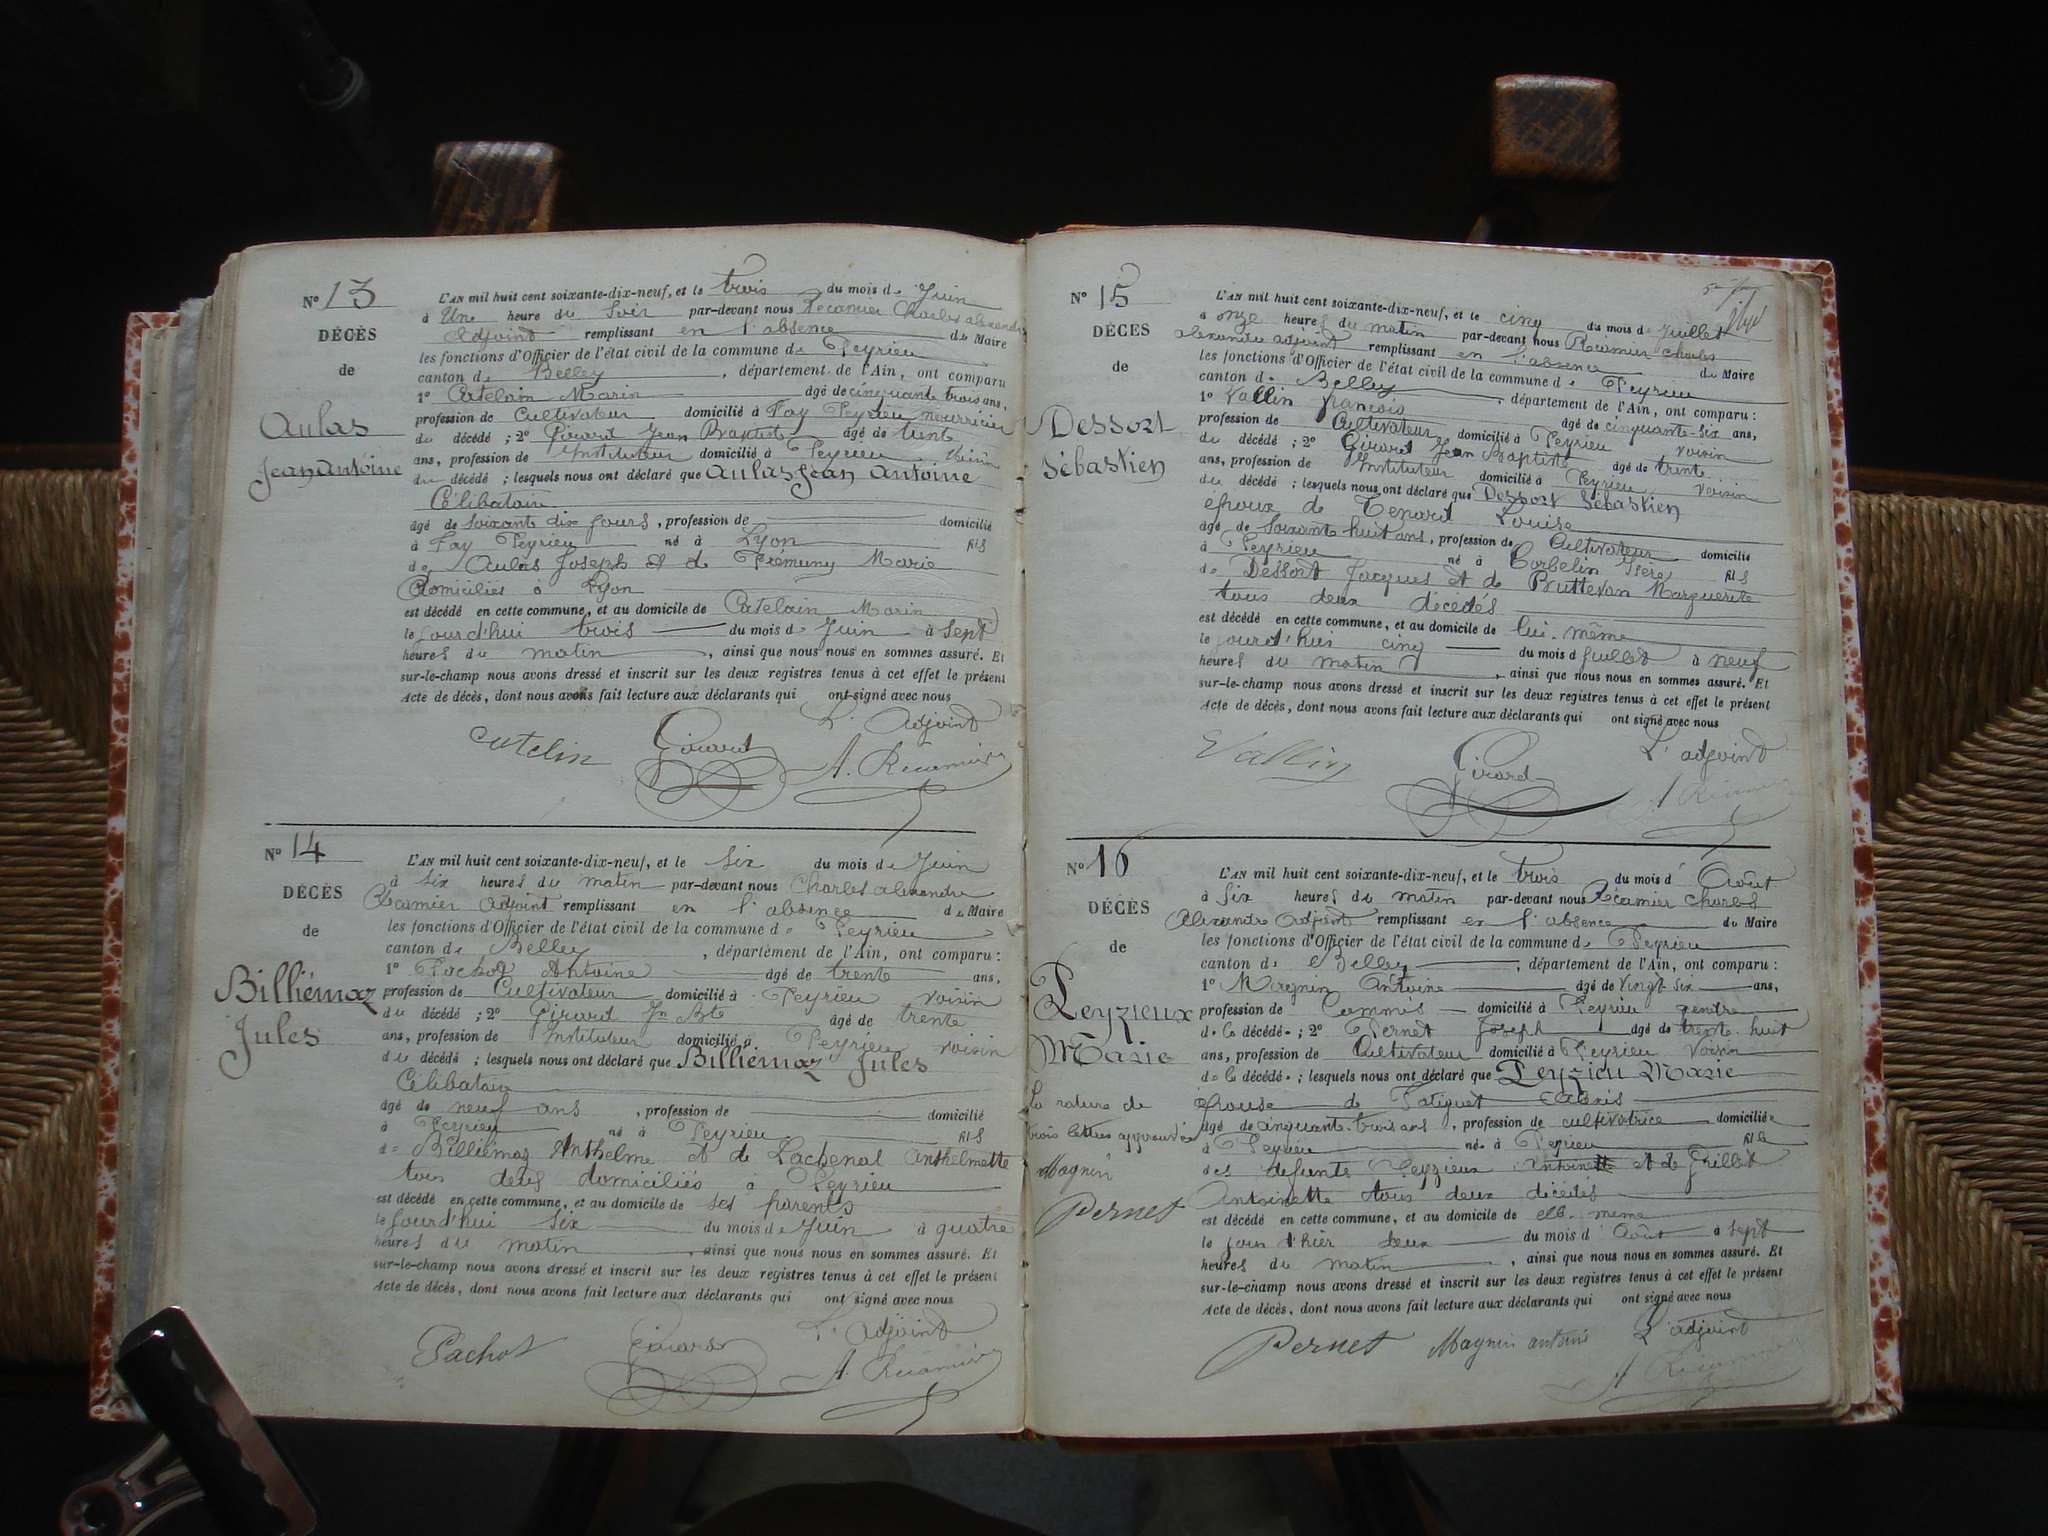 N° 13
DÉCÈS
de
Aulas
Jean Antoine
L'AN mil huit cent soixante-dix-neuf, et le trois du mois de Juin
à Une heure du Soir par-devant nous Récamier Charles alexandre
Adjoint remplissant en l'absence du Maire
les fonctions d'Officier de l'état civil de la commune de Peyrieu
canton de Belley, département de l'Ain, ont comparu
1° Catelain Marin âgé de cinquante trois ans,
profession de Cultivateur domicilié à Fay Peyrieu nourricier
du décédé ; 2° Girard Jean Baptiste âgé de trente
ans, profession de Instituteur domicilié à Peyrieu voisin
du décédé ; lesquels nous ont déclaré que Aulas Jean Antoine
Célibatain
âgé de soixante dix jours, profession de domicilié
à Fay Peyrieu né à Lyon fils
de Aulas Joseph et de Frémuny Marie
Domiciliés à Lyon
est décédé en cette commune, et au domicile de Catelain Marin
le jourd'hui trois du mois de Juin à sept
heures du matin, ainsi que nous nous en sommes assuré. Et
sur-le-champ nous avons dressé et inscrit sur les deux registres tenus à cet effet le présent
Acte de décès, dont nous avons fait lecture aux déclarants qui ont signé avec nous
L'adjoint
Catelin Girard A. Récamier
N° 14
DÉCÈS
de
Billiémaz
Jules
L'AN mil huit cent soixante-dix-neuf, et le six du mois de Juin
à six heures du matin par-devant nous Charles alexandre
Récamier Adjoint remplissant en l'absence du Maire
les fonctions d'Officier de l'état civil de la commune de Peyrieu
canton de Belley, département de l'Ain, ont comparu :
1° Pachot Antoine âgé de trente ans,
profession de Cultivateur domicilié à Peyrieu voisin
du décédé ; 2° Girard Jn Bte âgé de trente
ans, profession de Instituteur domicilié à Peyrieu voisin
du décédé ; lesquels nous ont déclaré que Billiémaz Jules
Célibatain
âgé de neuf ans, profession de domicilié
à Peyrieu né à Peyrieu fils
de Billiémaz Anthelme et de Lachenal Anthelmette
tous deux domiciliés à Peyrieu
est décédé en cette commune, et au domicile de ses parents
le jourd'hui six du mois de Juin à quatre
heures du matin, ainsi que nous nous en sommes assuré. Et
sur-le-champ nous avons dressé et inscrit sur les deux registres tenus à cet effet le présent
Acte de décès, dont nous avons fait lecture aux déclarants qui ont signé avec nous
L'adjoint
Pachot Girard A. Récamier
N° 15
DÉCÈS
de
Dessort
Sébastien
L'AN mil huit cent soixante-dix-neuf, et le cinq du mois de Juillet
à onze heures du matin par-devant nous Récamier Charles
alexandre adjoint remplissant en l'absence du Maire
les fonctions d'Officier de l'état civil de la commune de Peyrieu
canton de Belley, département de l'Ain, ont comparu :
1° Vallin françois âgé de cinquante-six ans,
profession de Cultivateur domicilié à Peyrieu voisin
du décédé ; 2° Girard Jean Baptiste âgé de trente
ans, profession de Instituteur domicilié à Peyrieu voisin
du décédé ; lesquels nous ont déclaré que Dessort Sébastien
époux de Tenard Louise
âgé de soixante huit ans, profession de Cultivateur domicilié
à Peyrieu né à Corbelin Isère fils
de Dessort Jacques et de Buttevan Marguerite
tous deux décédés
est décédé en cette commune, et au domicile de lui-même
le jourd'hui cinq du mois de Juillet à neuf
heures du matin, ainsi que nous nous en sommes assuré. Et
sur-le-champ nous avons dressé et inscrit sur les deux registres tenus à cet effet le présent
Acte de décès, dont nous avons fait lecture aux déclarants qui ont signé avec nous
L'adjoint
Vallin Girard A Récamier
N° 16
DÉCÈS
de
Peyzieux
Marie
La rature de
trois lettres approuvée
Magnin
Pernet
L'AN mil huit cent soixante-dix-neuf, et le trois du mois d'Août
à six heures du matin par-devant nous Récamier Charles
Alexandre Adjoint remplissant en l'absence du Maire
les fonctions d'Officier de l'état civil de la commune de Peyrieu
canton de Belley, département de l'Ain, ont comparu :
1° Magnin Antoine âgé de vingt six ans,
profession de Commis domicilié à Peyrieu gendre
de la décédée ; 2° Pernet Joseph âgé de trente-huit
ans, profession de Cultivateur domicilié à Peyrieu Voisin
de la décédée ; lesquels nous ont déclaré que Peyzieu Marie
épouse de Patiguet
âgé de cinquante-trois ans, profession de cultivatrice domiciliée
à Peyrieu née à Peyrieu fille
des défunts Peyzieux Antoine et de Grillet
Antoinette tous deux décédés
est décédé en cette commune, et au domicile de elle-même
le jour d'hier deux du mois d'Août à sept
heures du matin, ainsi que nous nous en sommes assuré. Et
sur-le-champ nous avons dressé et inscrit sur les deux registres tenus à cet effet le présent
Acte de décès, dont nous avons fait lecture aux déclarants qui ont signé avec nous
Pernet Magnin antoine L'adjoint
A Récamier